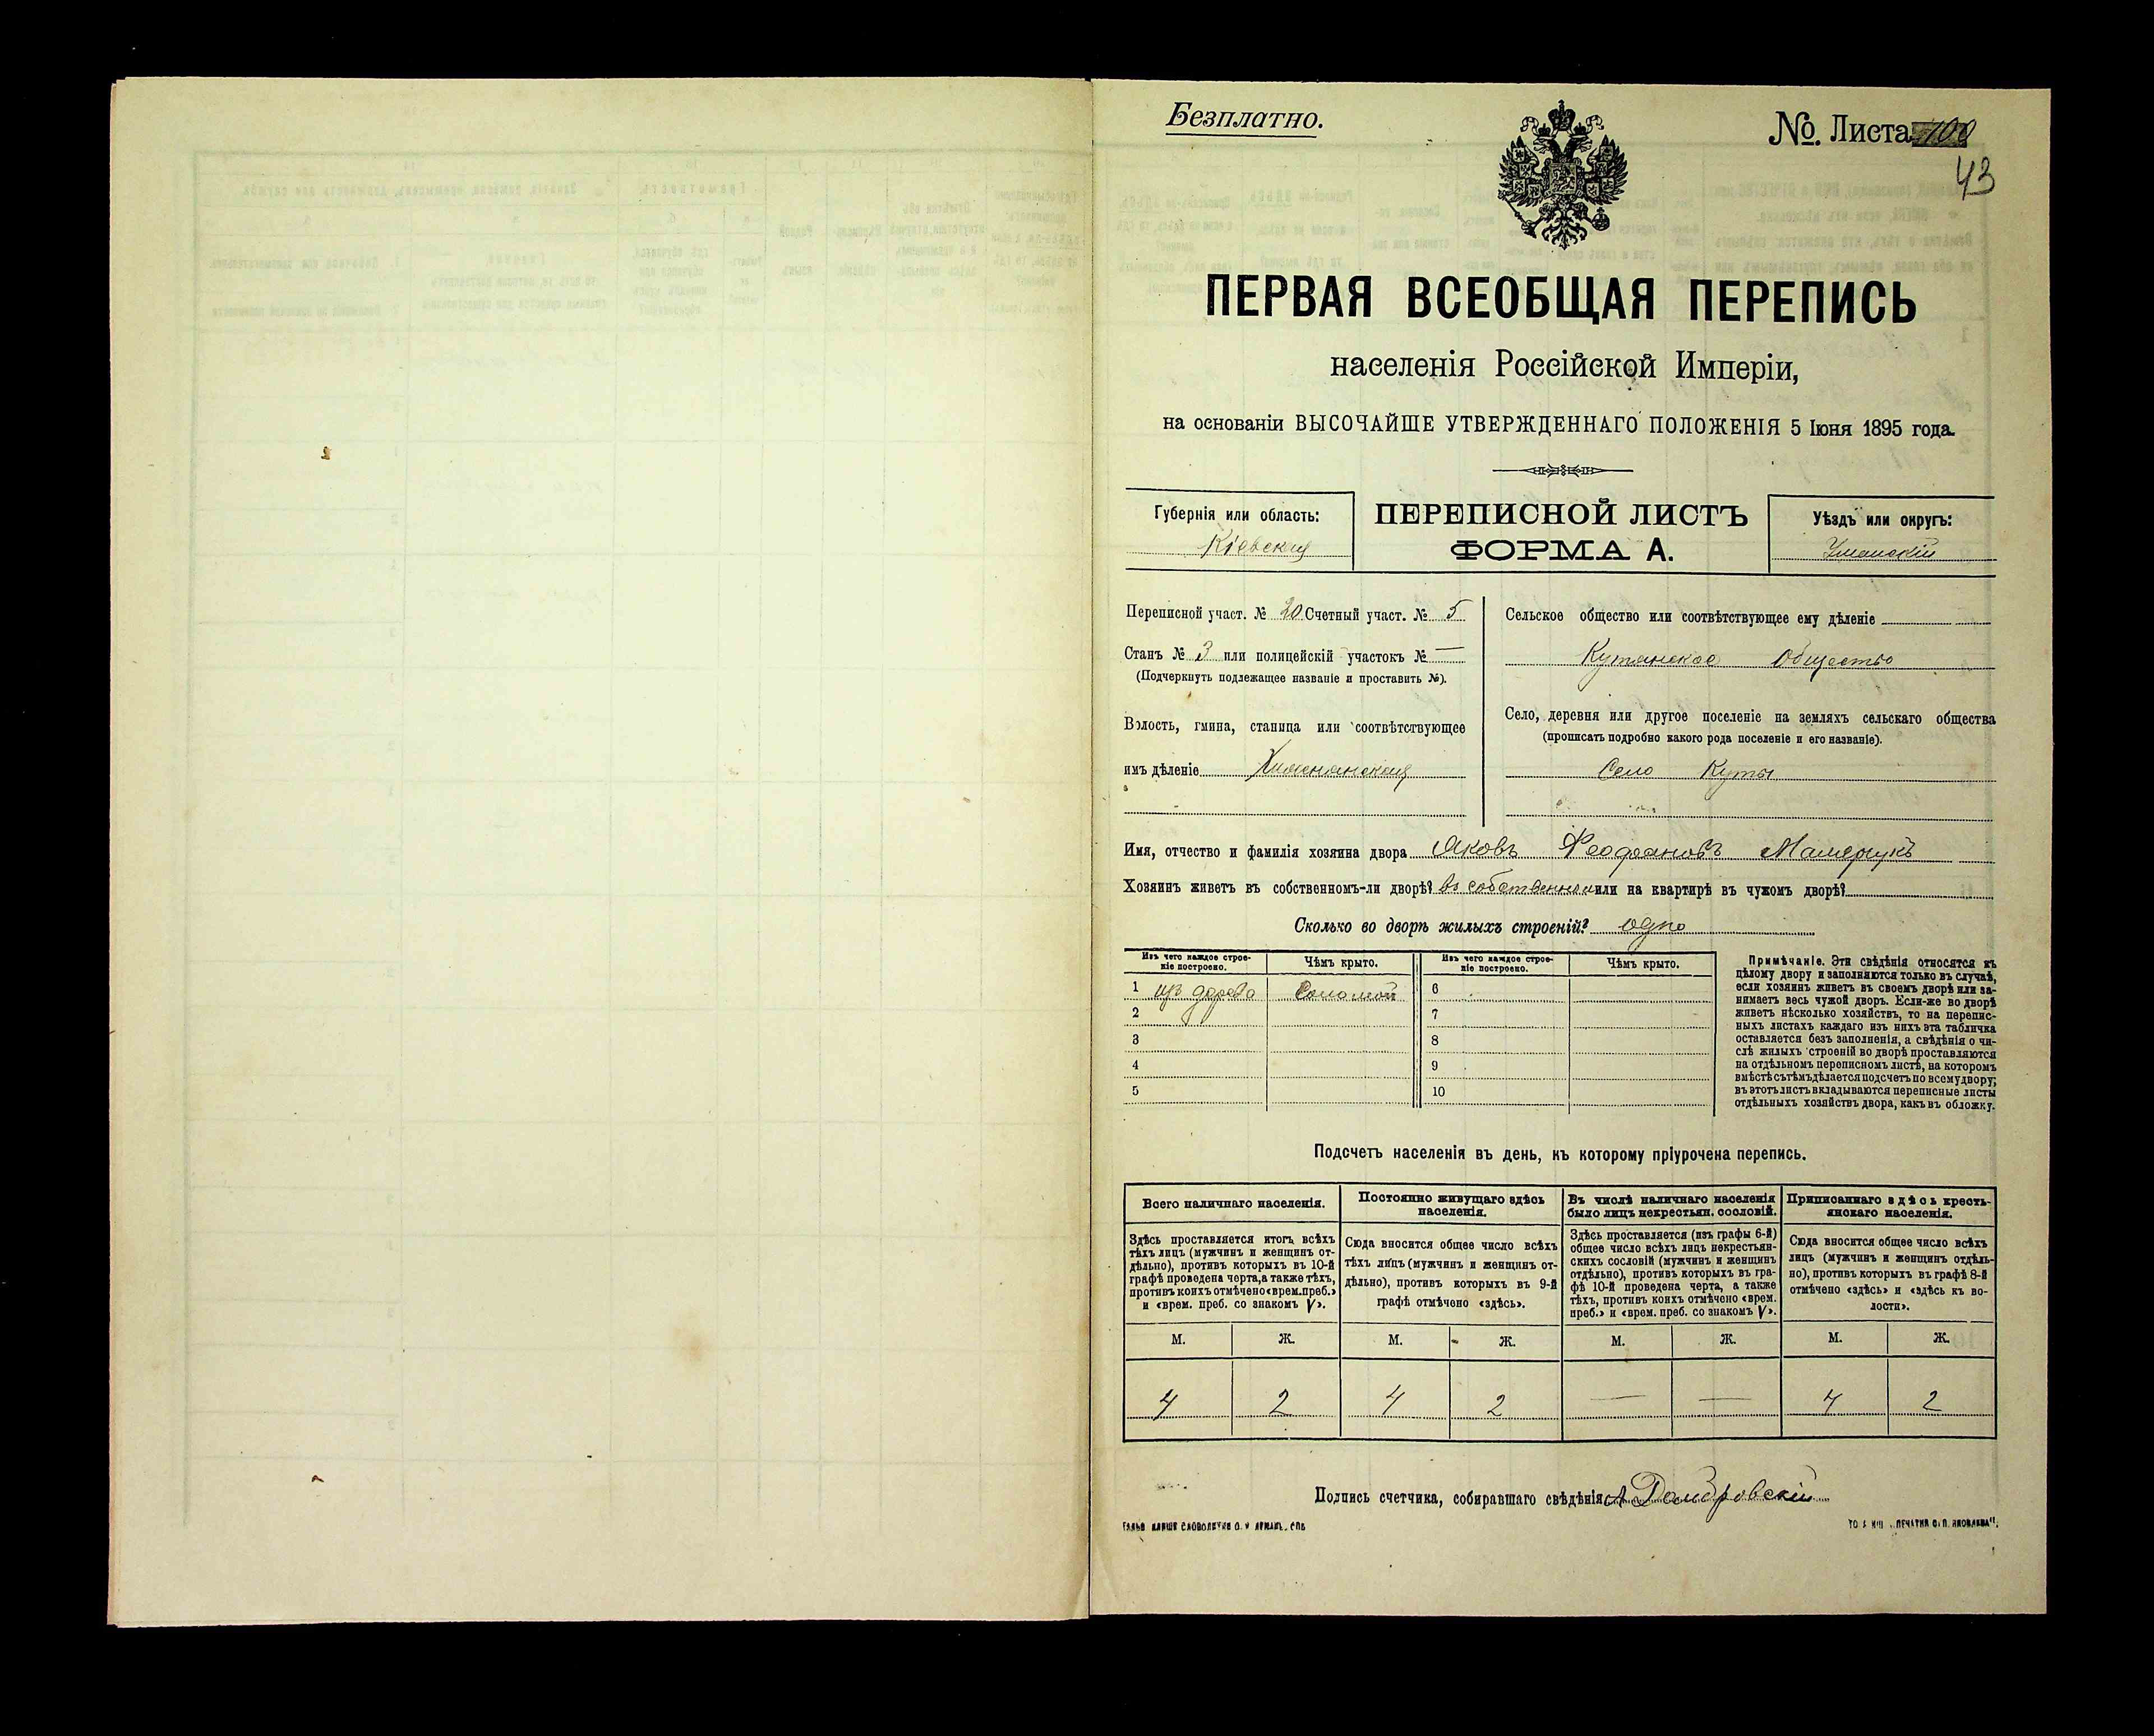 Безплатно.
№. Листа 100
43
ПЕРВАЯ ВСЕОБЩАЯ ПЕРЕПИСЬ
населенія Россійской Имперіи,
на основаніи ВЫСОЧАЙШЕ УТВЕРЖДЕННАГО ПОЛОЖЕНІЯ 5 Іюня 1895 года.
Губернія или область:
Кіевская
ПЕРЕПИСНОЙ ЛИСТЪ
ФОРМА А.
Уѣздъ или округъ:
Уманскій
Переписной участ. № 20 Счетный участ. № 5
Станъ № 3 или полицейскій участокъ № —
(Подчеркнуть подлежащее названіе и проставить №).
Волость, гмина, станица или соотвѣтствующее
имъ дѣленіе
Сельское общество или соотвѣтствующее ему дѣленіе
Кутянское Общество
Село, деревня или другое поселеніе на земляхъ сельскаго общества
(прописать подробно какого рода поселеніе и его названіе).
Село Куты
Имя, отчество и фамилія хозяина двора Яковъ Феофановъ
Хозяинъ живетъ въ собственномъ-ли дворѣ? въ собственном или на квартирѣ въ чужомъ дворѣ?
Сколько во дворѣ жилыхъ строеній? одно
Изъ чего каждое строеніе построено.
Чѣмъ крыто.
Изъ чего каждое строеніе построено.
Чѣмъ крыто.
1 изъ дерева Соломой 6
2 7
3 8
4 9
5 10
Примѣчаніе. Эти свѣдѣнія относятся къ
цѣлому двору и заполняются только въ случаѣ,
если хозяинъ живетъ въ своемъ дворѣ или за-
нимаетъ весь чужой дворъ. Если-же во дворѣ
живетъ нѣсколько хозяйствъ, то на перепис-
ныхъ листахъ каждаго изъ нихъ эта табличка
оставляется безъ заполненія, а свѣдѣнія о чи-
слѣ жилыхъ строеній во дворѣ проставляются
на отдѣльномъ переписномъ листѣ, на которомъ
вмѣстѣ съ тѣмъ дѣлается подсчетъ по всему двору;
въ этотъ листъ вкладываются переписные листы
отдѣльныхъ хозяйствъ двора, какъ въ обложку.
Подсчетъ населенія въ день, къ которому пріурочена перепись.
Всего наличнаго населенія.
Здѣсь проставляется итогъ всѣхъ
тѣхъ лицъ (мужчинъ и женщинъ от-
дѣльно), противъ которыхъ въ 10-й
графѣ проведена черта, а также тѣхъ,
противъ коихъ отмѣчено «врем. преб.»
и «врем. преб. со знакомъ V».
Постоянно живущаго здѣсь
населенія.
Сюда вносится общее число всѣхъ
тѣхъ лицъ (мужчинъ и женщинъ от-
дѣльно), противъ которыхъ въ 9-й
графѣ отмѣчено «здѣсь».
Въ числѣ наличнаго населенія
было лицъ некрестьян. сословій.
Здѣсь проставляется (изъ графы 6-й)
общее число всѣхъ лицъ некрестьян-
скихъ сословій (мужчинъ и женщинъ
отдѣльно), противъ которыхъ въ гра-
фѣ 10-й проведена черта, а также
тѣхъ, противъ коихъ отмѣчено «врем.
преб.» и «врем. преб. со знакомъ V».
Приписаннаго здѣсь кресть-
янскаго населенія.
Сюда вносится общее число всѣхъ
лицъ (мужчинъ и женщинъ отдѣль-
но), противъ которыхъ въ графѣ 8-й
отмѣчено «здѣсь» и «здѣсь къ во-
лости».
М. Ж. М. Ж. М. Ж. М. Ж.
4 2 4 2 — — 4 2
Подпись счетчика, собиравшаго свѣдѣнія А Домбровскій